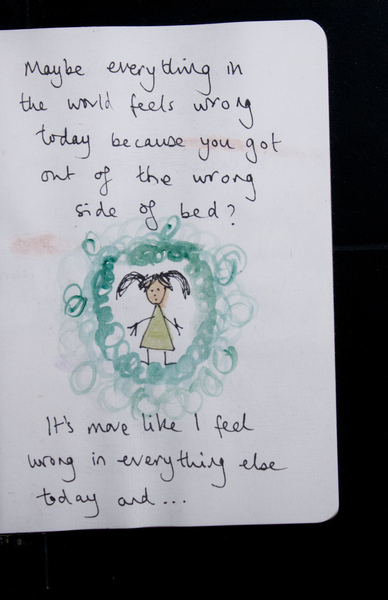 Maybe everything in
the world feels wrong
today because you got
out of the wrong
side of bed?
It's more like I feel
wrong in everything else
today and...